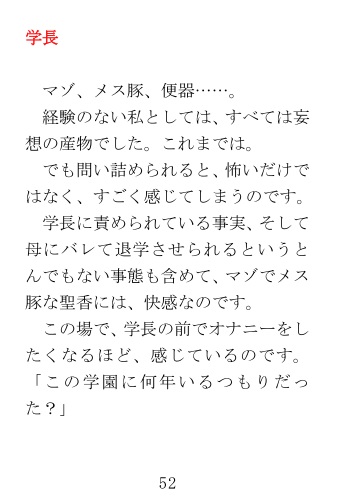 学長
マゾ、メス豚、便器……。
経験のない私としては、すべては妄
想の産物でした。これまでは。
でも問い詰められると、怖いだけで
はなく、すごく感じてしまうのです。
学長に責められている事実、そして
母にバレて退学させられるというと
んでもない事態も含めて、マゾでメス
豚な聖香には、快感なのです。
この場で、学長の前でオナニーをし
たくなるほど、感じているのです。
「この学園に何年いるつもりだっ
た？」
52